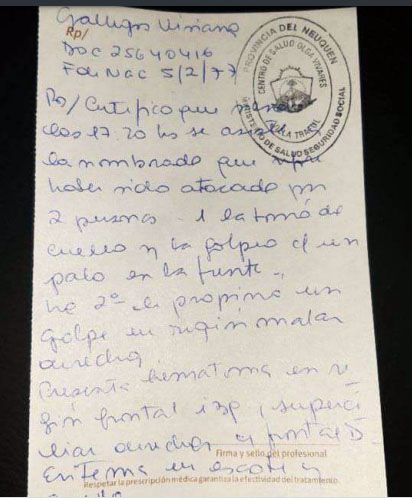 Gallegos Viviana
Rp/
DOC 25640416
F de Nac 5/2/77
PROVINCIA DEL NEUQUEN
CENTRO DE SALUD OLGA VIVARES
VILLA TRAFUL
MINISTERIO DE SALUD Y SEGURIDAD SOCIAL
Rp/ Certifico que
las 17.20 hs se
la nombrada que
haber sido atacada por
2 personas 1 la tomó de
cuello y la golpeo c/ un
palo en la frente.
la 2º le propino un
golpe en región malar
derecha.
Presenta hematoma en re
gión frontal izq, superci
liar derecha y frontal D
Firma y sello del profesional
Eritema en escote y
Respetar la prescripción médica garantiza la efectividad del tratamiento.